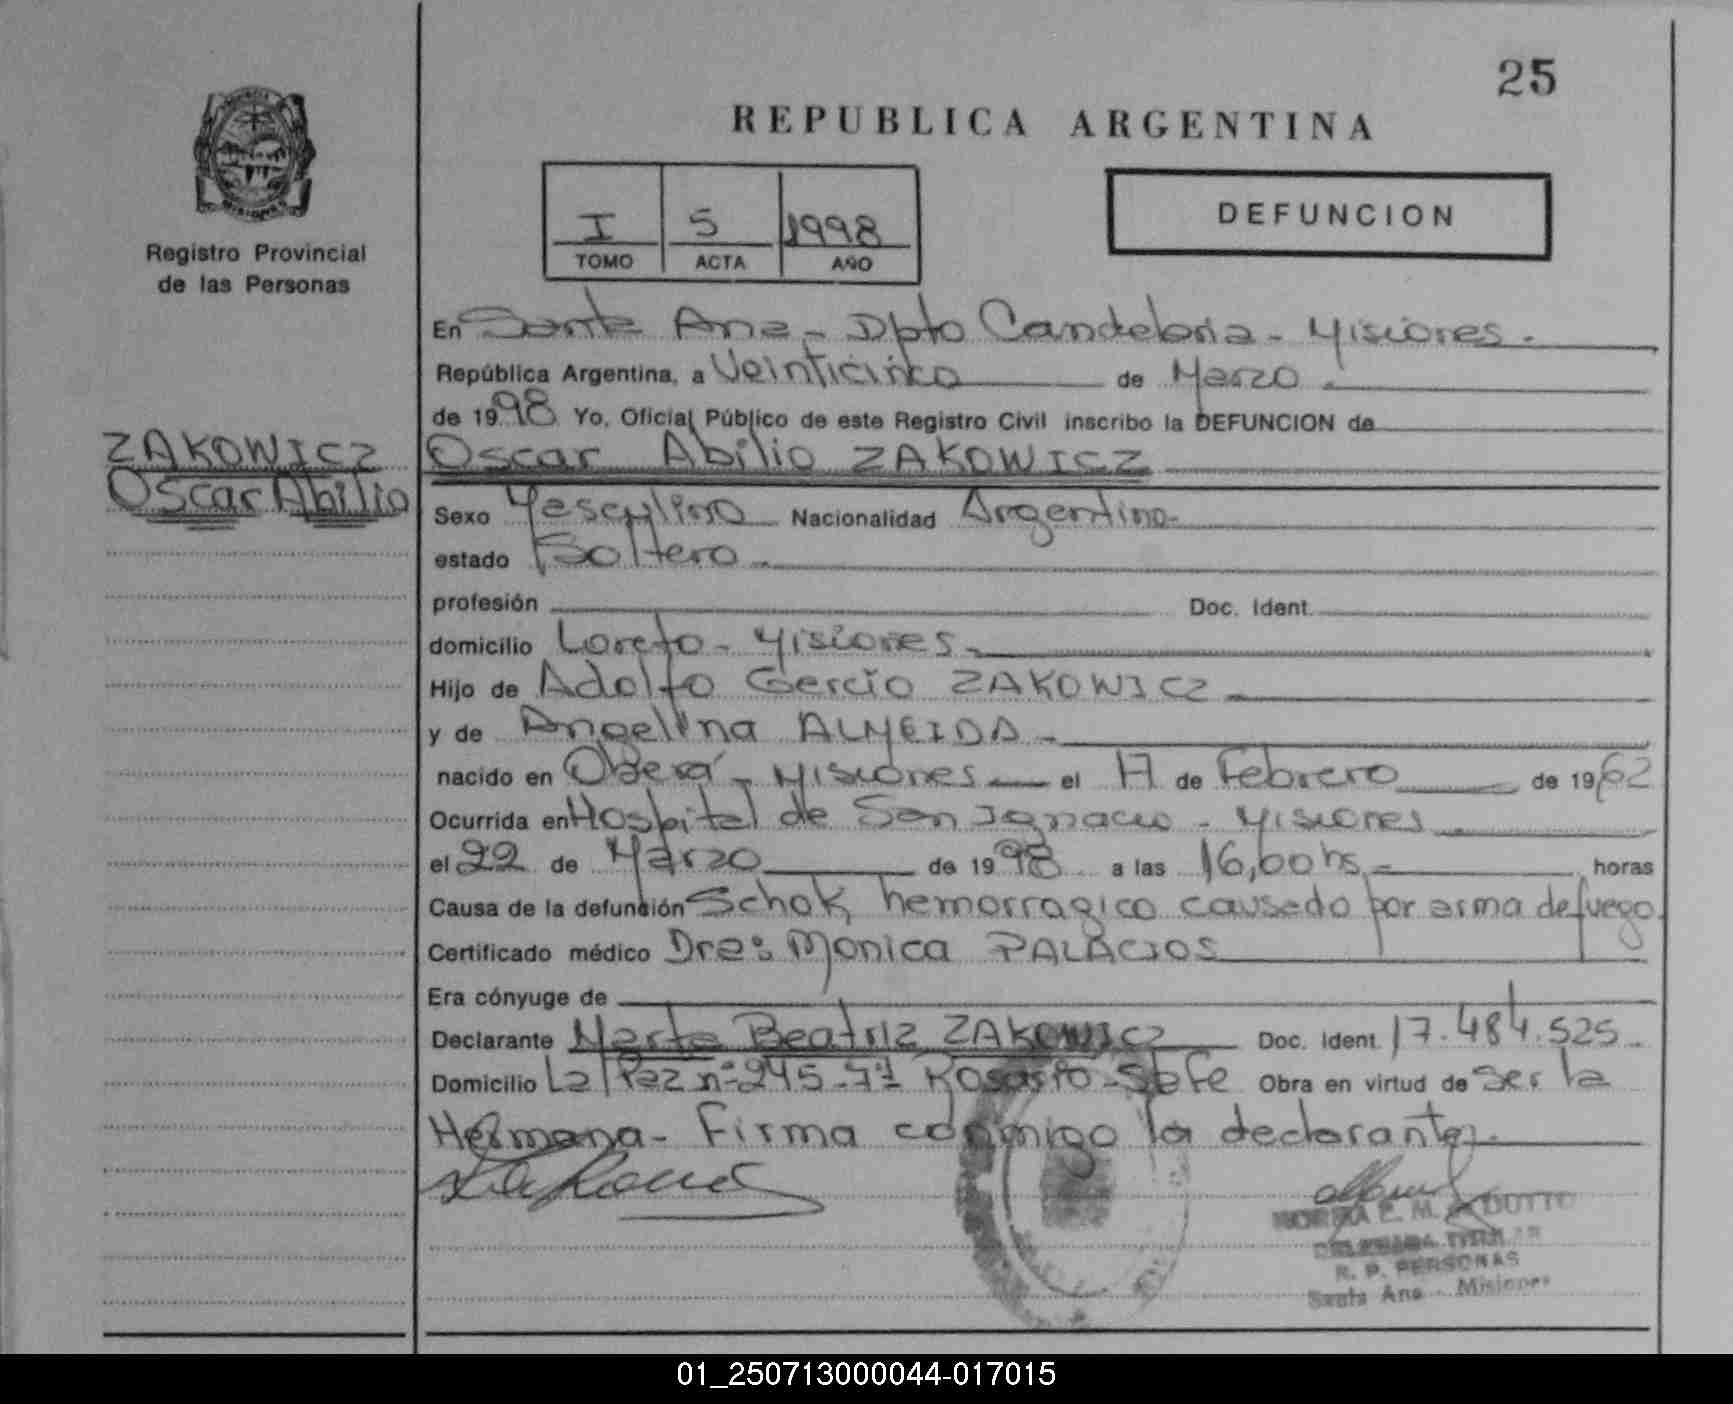 25
REPUBLICA ARGENTINA
Registro Provincial
de las Personas
I 5 1998
TOMO ACTA AÑO
DEFUNCION
En Santa Ana - Dpto Candelaria - Misiones.
República Argentina, a Veinticinco de Marzo.
de 1998 Yo, Oficial Público de este Registro Civil inscribo la DEFUNCION de
ZAKOWICZ
Oscar Abilio
Oscar Abilio ZAKOWICZ
Sexo Masculino Nacionalidad Argentino-
estado Soltero
profesión Doc. Ident.
domicilio Loreto - Misiones.
Hijo de Adolfo Gercio ZAKOWICZ
y de Angelina ALMEIDA -
nacido en Oberá - Misiones el 17 de Febrero de 1962
Ocurrida en Hospital de San Ignacio - Misiones
el 22 de Marzo de 1998 a las 16,00 hs. horas
Causa de la defunción Schok hemorragico causado por arma de fuego.
Certificado médico Dra: Monica PALACIOS
Era cónyuge de
Declarante Marta Beatriz ZAKOWICZ Doc. Ident. 17.484.525.
Domicilio La Paz nº 245 Rosario - Sta Fe Obra en virtud de ser la
Hermana - Firma conmigo la declarante.
NORMA E. M. DUTTO
DELEGADA TITULAR
R. P. PERSONAS
Santa Ana - Misiones
01_250713000044-017015